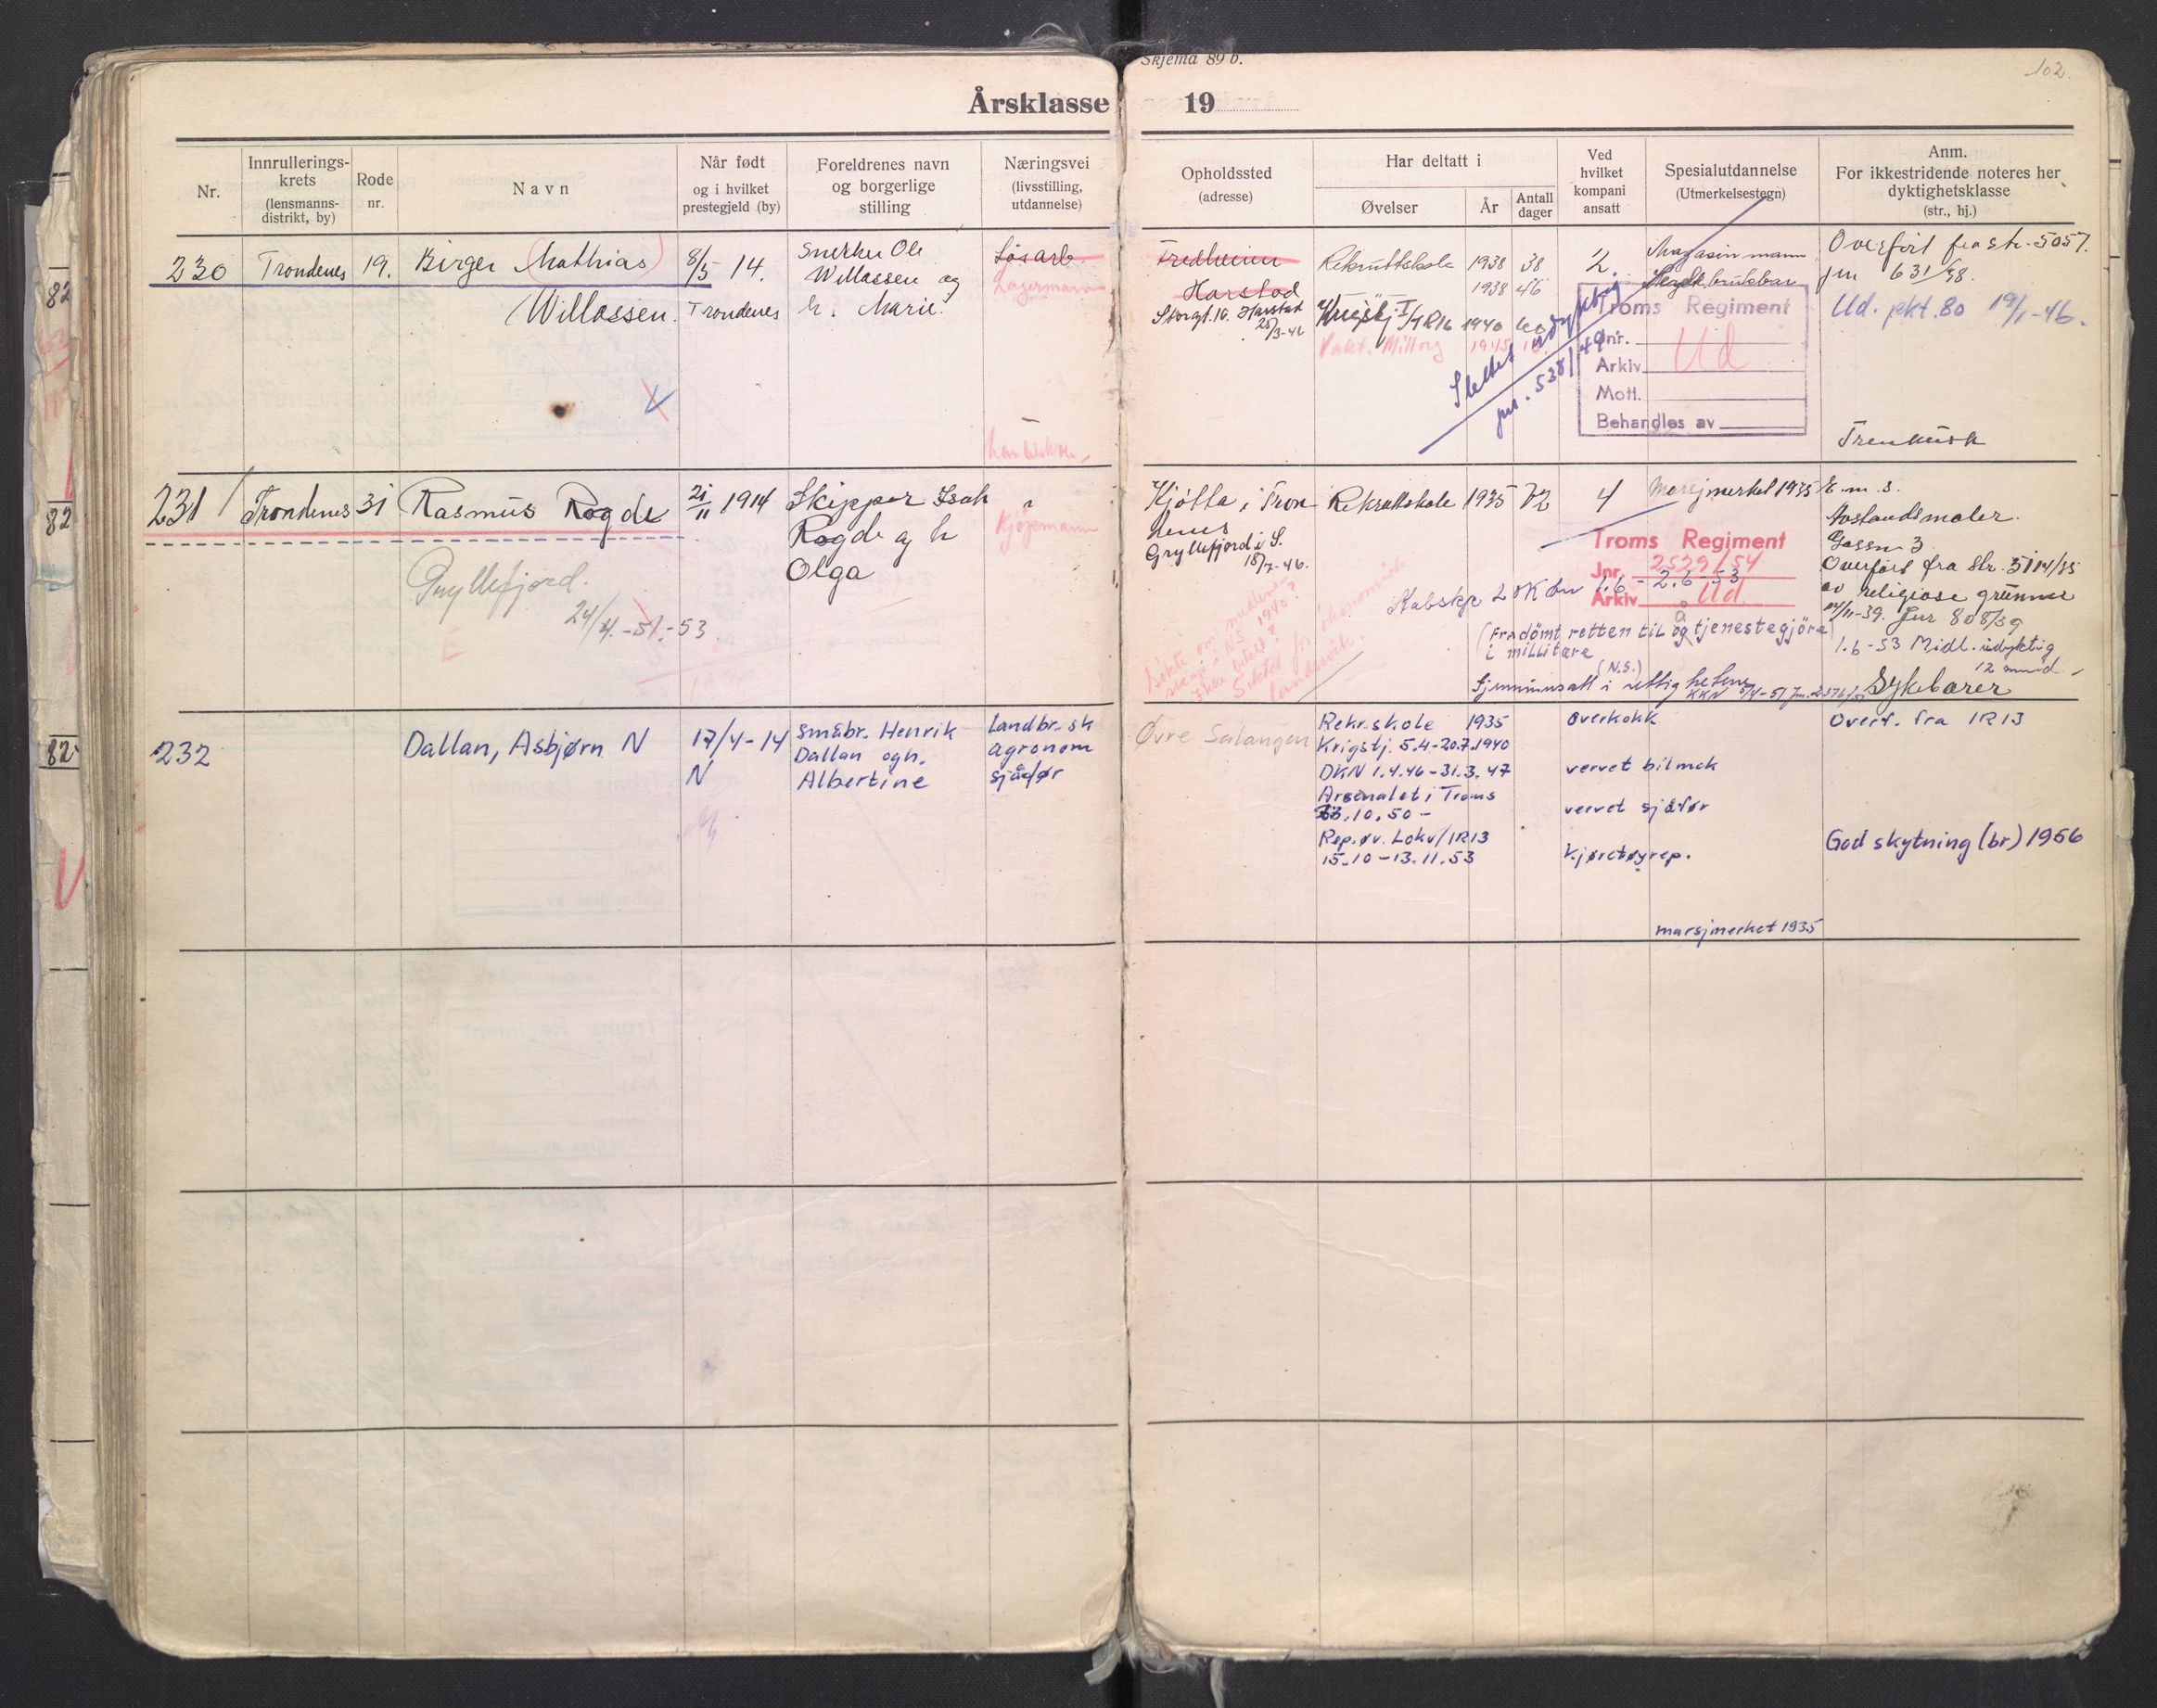 Skjema 89 b.
102.
Årsklasse 19
Nr.
Innrullerings-
krets
(lensmanns-
distrikt, by)
Rode
nr.
Navn
Når født
og i hvilket
prestegjeld (by)
Foreldrenes navn
og borgerlige
stilling
Næringsvei
(livsstilling,
utdannelse)
Opholdssted
(adresse)
Har deltatt i
Øvelser
År
Antall
dager
Ved
hvilket
kompani
ansatt
Spesialutdannelse
(Utmerkelsestegn)
Anm.
For ikkestridende noteres her
dyktighetsklasse
(str., hj.)
230 Trondenes 19. Birger Mathias
Willassen.
8/5 14.
Trondenes
Snekker Ole
Willassen og
h. Marie.
Løsarb.
Lagermann
Fredheim
Harstad
Storgt. 10. Harstad
25/3-46
Rekruttskole 1938 38
1938 46
I/IR16 1940
1945
2.
Magasinmann
Slettet udyktig
jnr. 538/49
Troms Regiment
Jnr.
Arkiv Ud
Mott.
Behandles av
Overført fra str. 5057.
jnr 631/38.
Ud. pkt. 80 19/1-46.
231 Trondenes 31 Rasmus Rogde
Gryllefjord.
24/4.-51.-53
E
21/11 1914
Skipper Isak
Rogde og h
Olga
Kjøpmann
Kjøtta i Tron
denes
Gryllefjord i S.
18/7-46.
Rekruttskole 1935 72
4
Marsjmerket 1935
Troms Regiment
Jnr. 2529/54
Arkiv Ud.
1.6 - 2.6-53
(Fradömt retten til å tjenestegjöre
i millitære
(N.S.)
Gjeninnsatt i rettighetene
E.m.s.
Avstandsmåler.
Gassm 3
Overført fra str. 5114/35
av religiøse grunner
14/11-39. Jnr 808/39
1.6-53 Midl. udyktig
12 mnd.
Sykebærer
232
Dallan, Asbjørn N
17/4-14
N
småbr. Henrik
Dallan og h.
Albertine
Landbr. sk
agronom
sjåfør
Øvre Salangen
Rekr.skole 1935
Krigstj. 5.4-20.7.1940
DKN 1.4.46-31.3.47
Arsenalet i Troms
23.10.50-
Rep.øv. Lokv/IR13
15.10-13.11.53
overkokk
vervet bilmek
vervet sjåfør
Kjøretøyrep.
marsjmerket 1935
Overf. fra IR13
God skytning (br) 1956
82
82
82